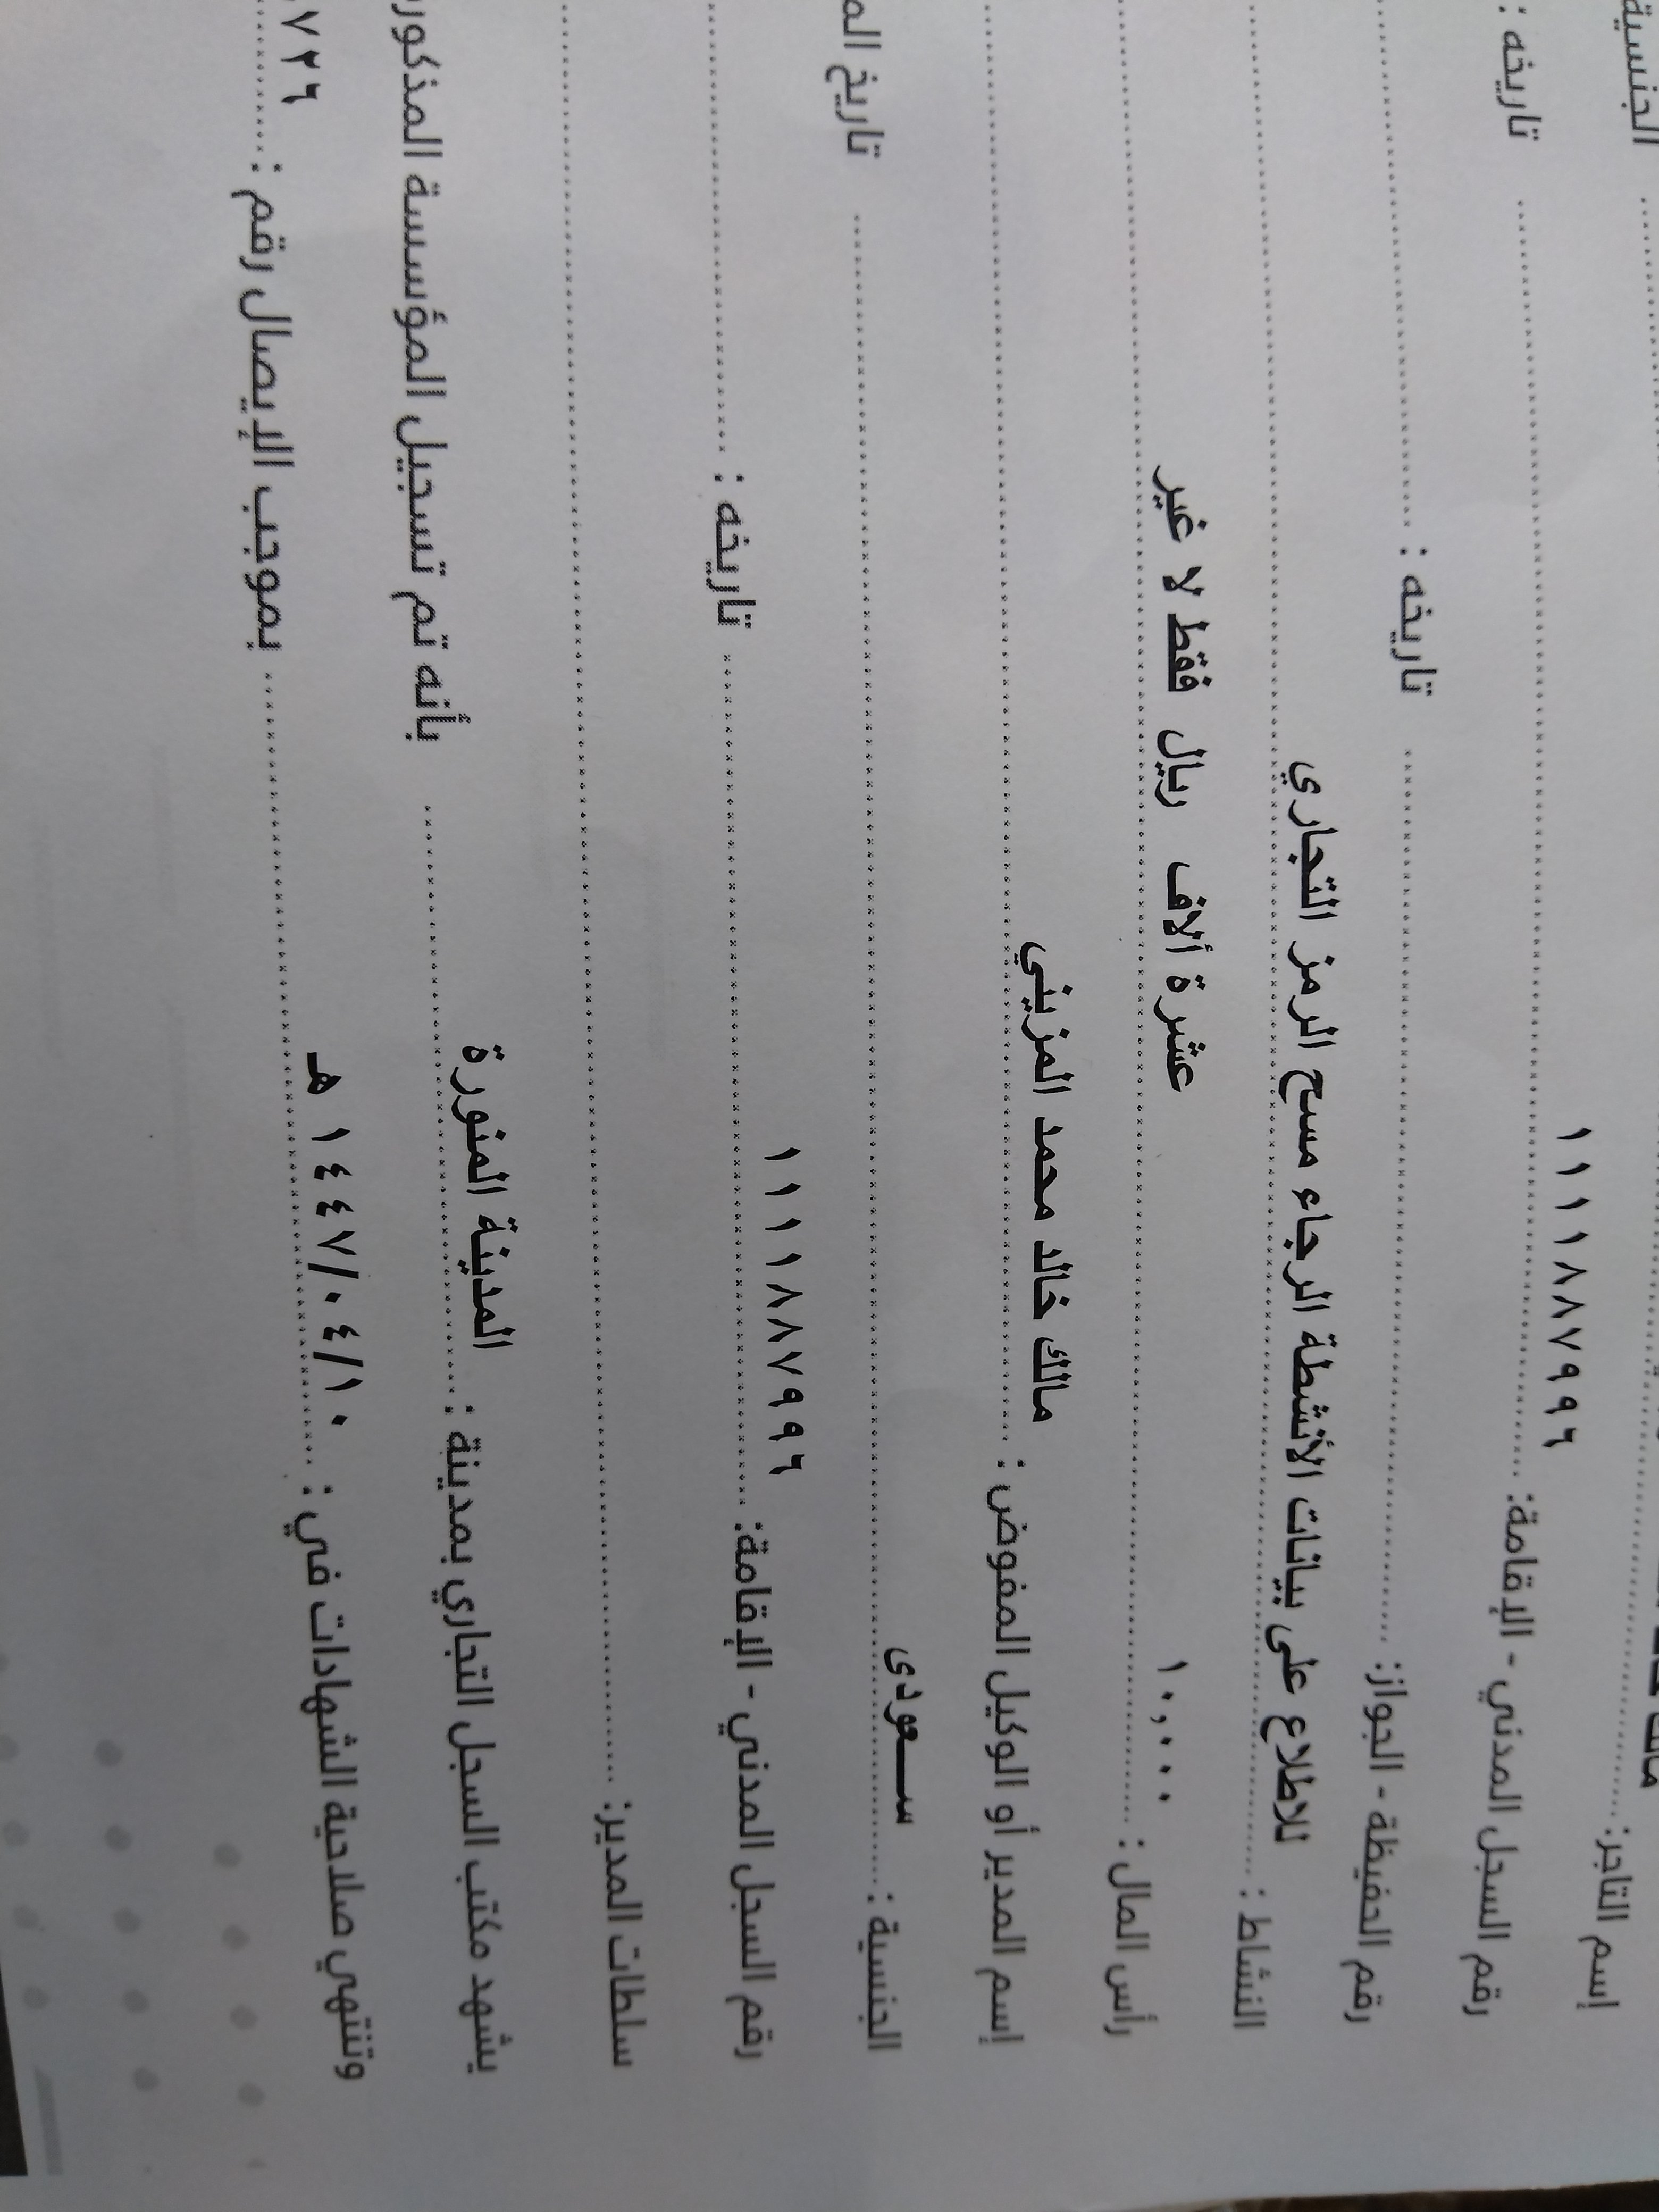 إسم التاجر: الجنسية
رقم السجل المدني - الإقامة: ١١١١٨٨٧٩٩٦ تاريخه :
رقم الحفيظة - الجواز: تاريخه :
النشاط : للاطلاع على بيانات الأنشطة الرجاء مسح الرمز التجاري
رأس المال : ١٠,٠٠٠ عشرة ألاف ريال فقط لا غير
إسم المدير أو الوكيل المفوض : مالك خالد محمد المزيني
الجنسية : سعودى تاريخ
رقم السجل المدني - الإقامة: ١١١١٨٨٧٩٩٦ تاريخه :
سلطات المدير:
يشهد مكتب السجل التجاري بمدينة : المدينة المنورة بأنه تم تسجيل المؤسسة المذكور
وتنتهي صلاحية الشهادات في : ١٤٤٧/٠٤/١٠ هـ بموجب الإيصال رقم : ٧٢٦